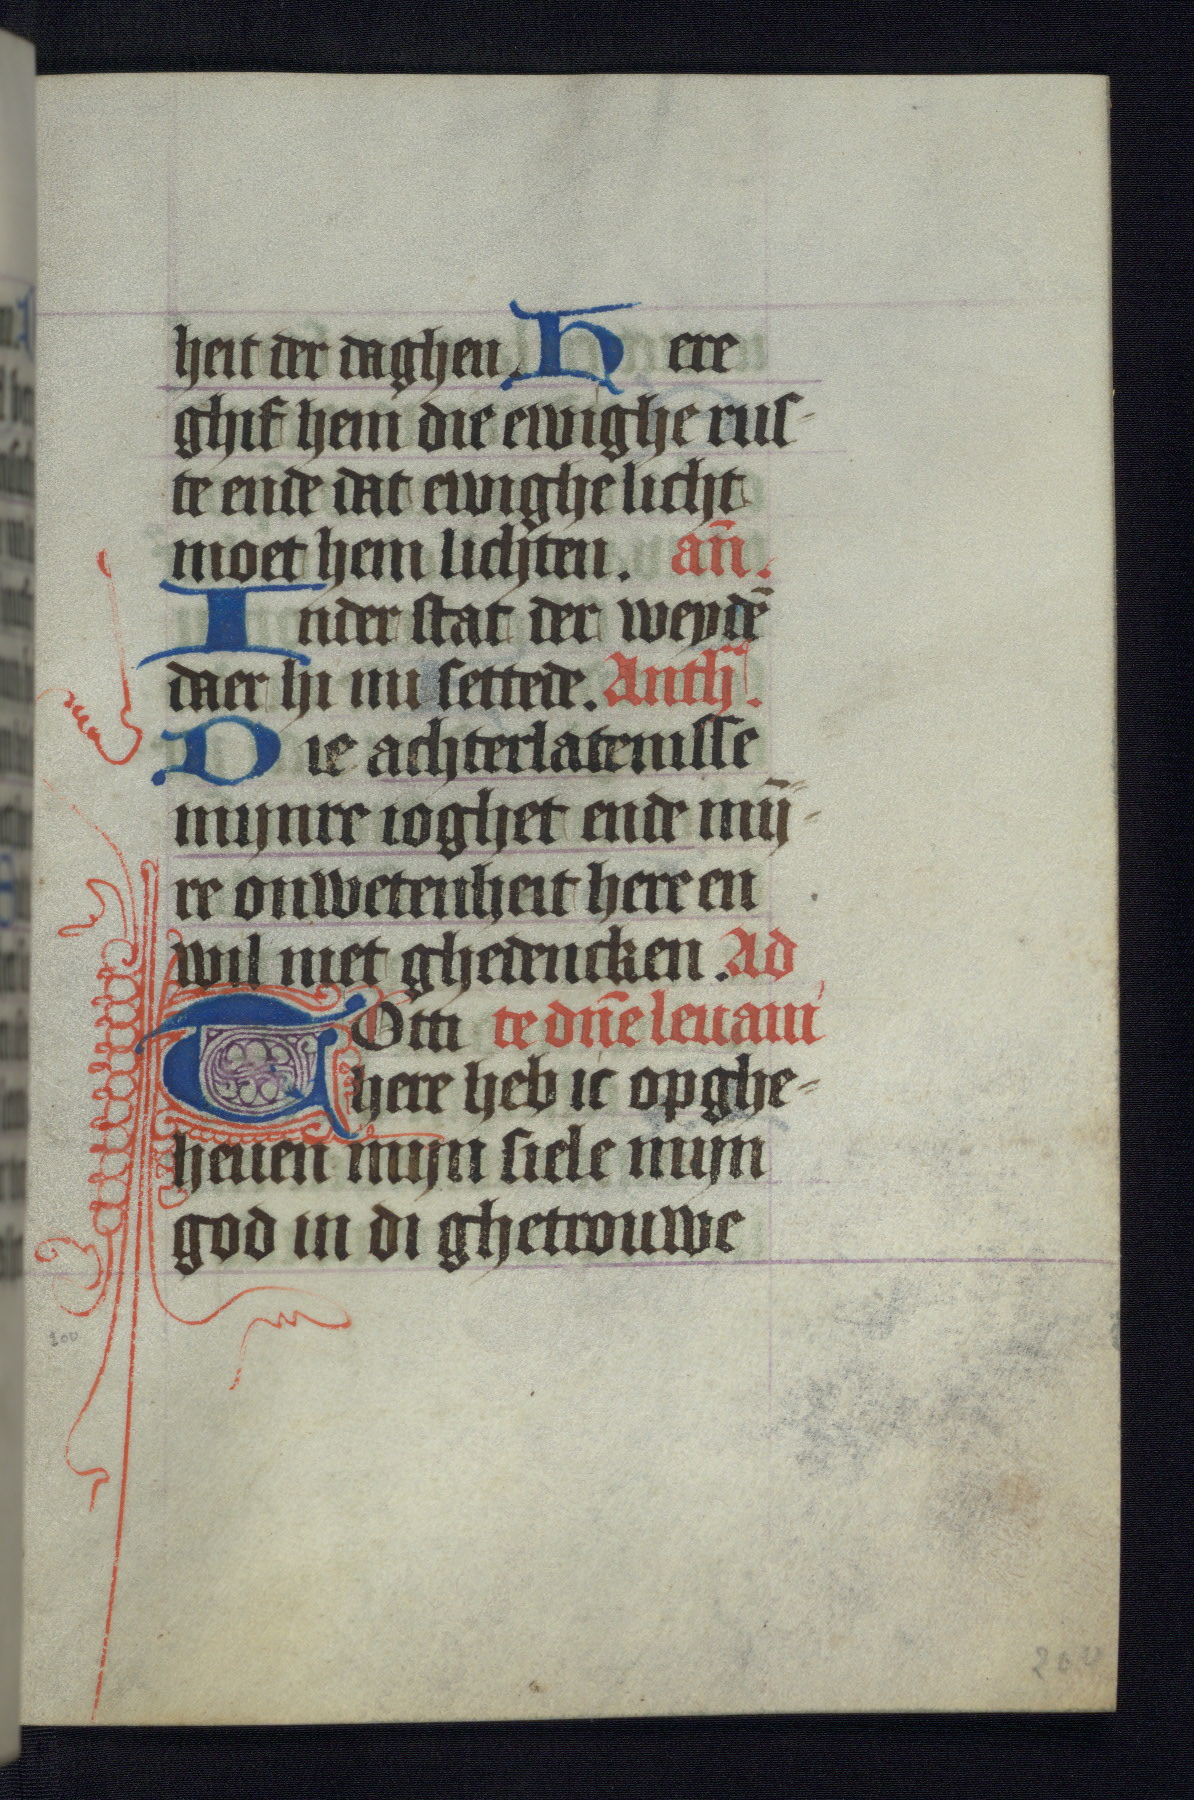 heit der daghen. Here
ghif hem die ewighe rus-
te ende dat ewighe licht
moet hem lichten. an̄.
Inder stat der weydē
daer hi mi settede. Anth̄.
Die achterlatenisse
mijnre ioghet ende mij̄-
re onwetenheit here en
wil niet ghedencken. Ad
TOtti te dn̄e leuaui
here heb ic opghe-
heuen mijn siele mijn
god in di ghetrouwe
100
200